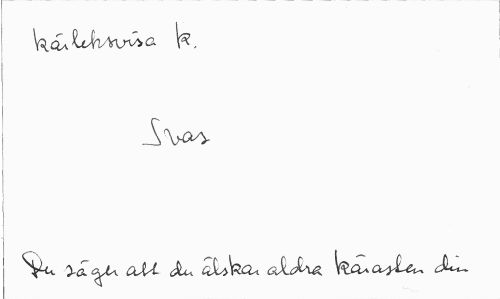 kärleksvisa k.
Svas
Du säger att du älskar aldra kärasten din